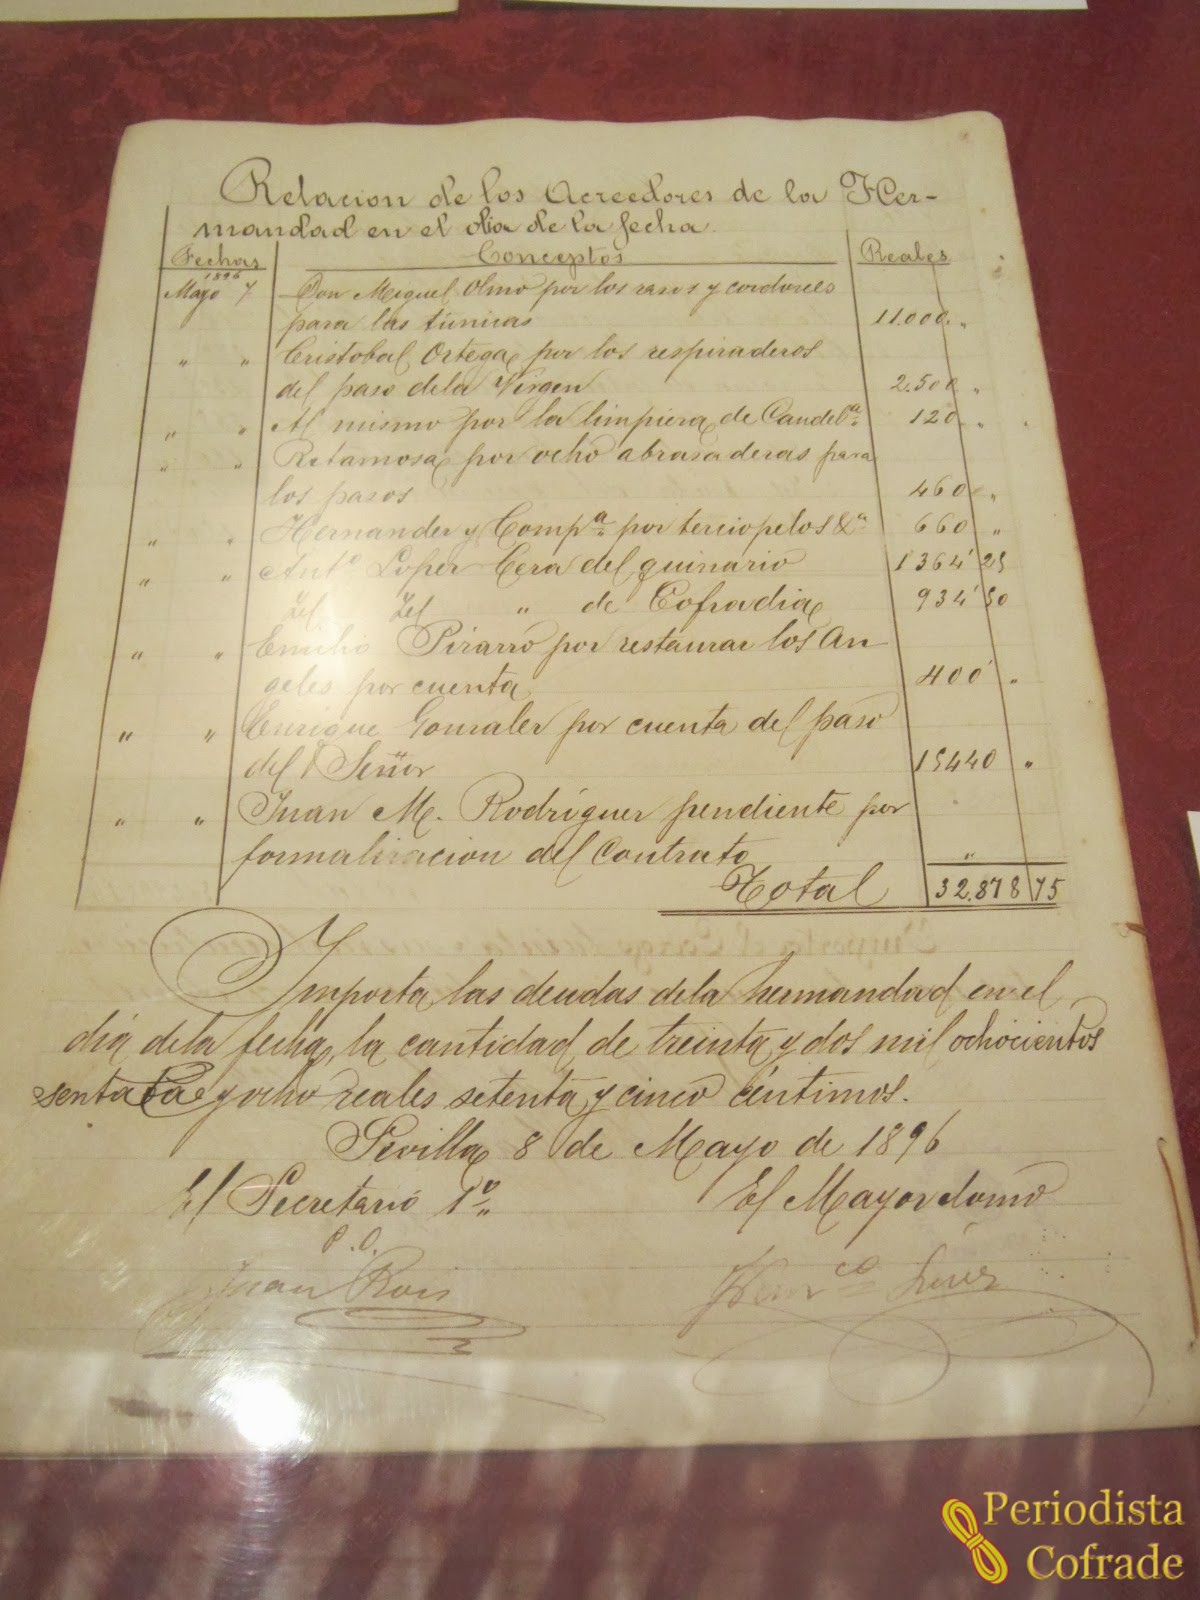 Relacion de los Acreedores de la Her-
mandad en el dia de la fecha.
Fechas Conceptos Reales
1896
Mayo 7 Don Miguel Olmo por los rasos y cordones
para las túnicas 11.000 "
" " Cristobal Ortega por los respiraderos
del paso de la Virgen 2.500 "
" " Al mismo por la limpieza de Candelª 120 "
" " Retamosa por ocho abrasaderas para
los pasos 460 "
" " Hernandez y Compª por terciopelos &ª 660 "
" " Antº Lopez Cera del quinario 1364' 25
" de Cofradia 934' 50
" " Emilio Pizarro por restaurar los An
geles por cuenta 400' "
" " Enrique Gonzalez por cuenta del paso
del Señor 15440 "
" " Juan M. Rodríguez pendiente por
formalizacion del Contrato "
Total 32.878 75
Importa las deudas de la hermandad en el
día de la fecha, la cantidad de treinta y dos mil ochocientos
y ocho reales setenta y cinco céntimos.
Sevilla 8 de Mayo de 1896
El Secretario 1º El Mayordomo
P.O.
Juan
Periodista
Cofrade